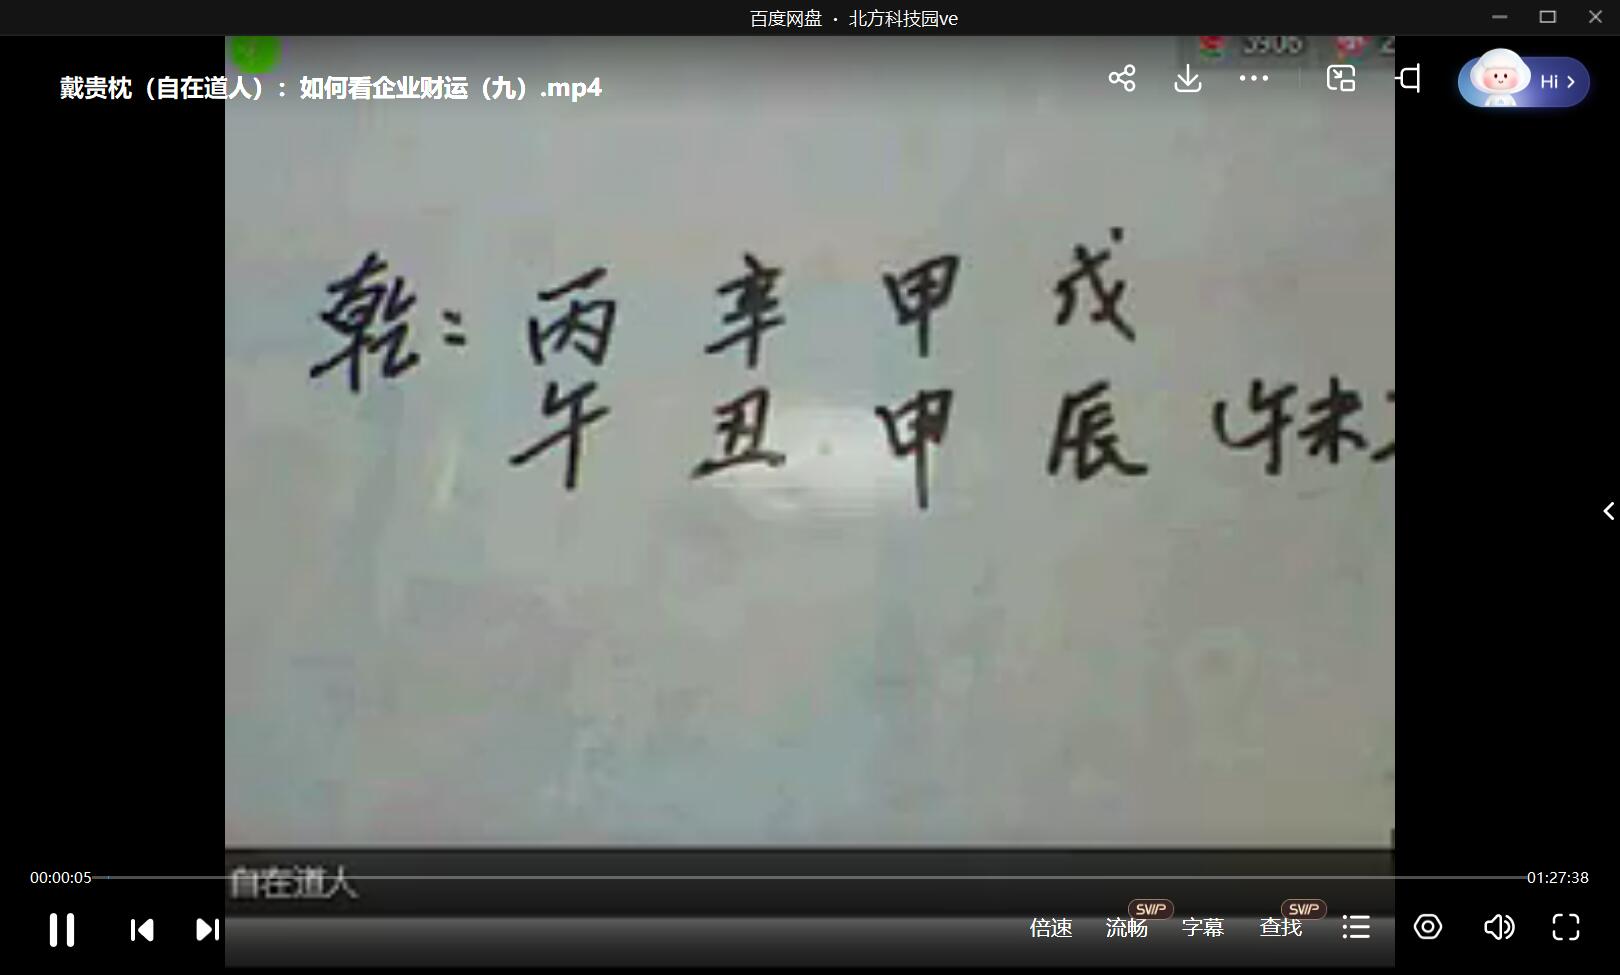 百度网盘 · 北方科技园ve
3906
戴贵枕（自在道人）：如何看企业财运（九）.mp4
Hi
乾：丙 辛 甲 戊
午 丑 申 辰（午未
00:00:05
01:27:38
自在道人
倍速 流畅 SVIP 字幕 查找 SVIP